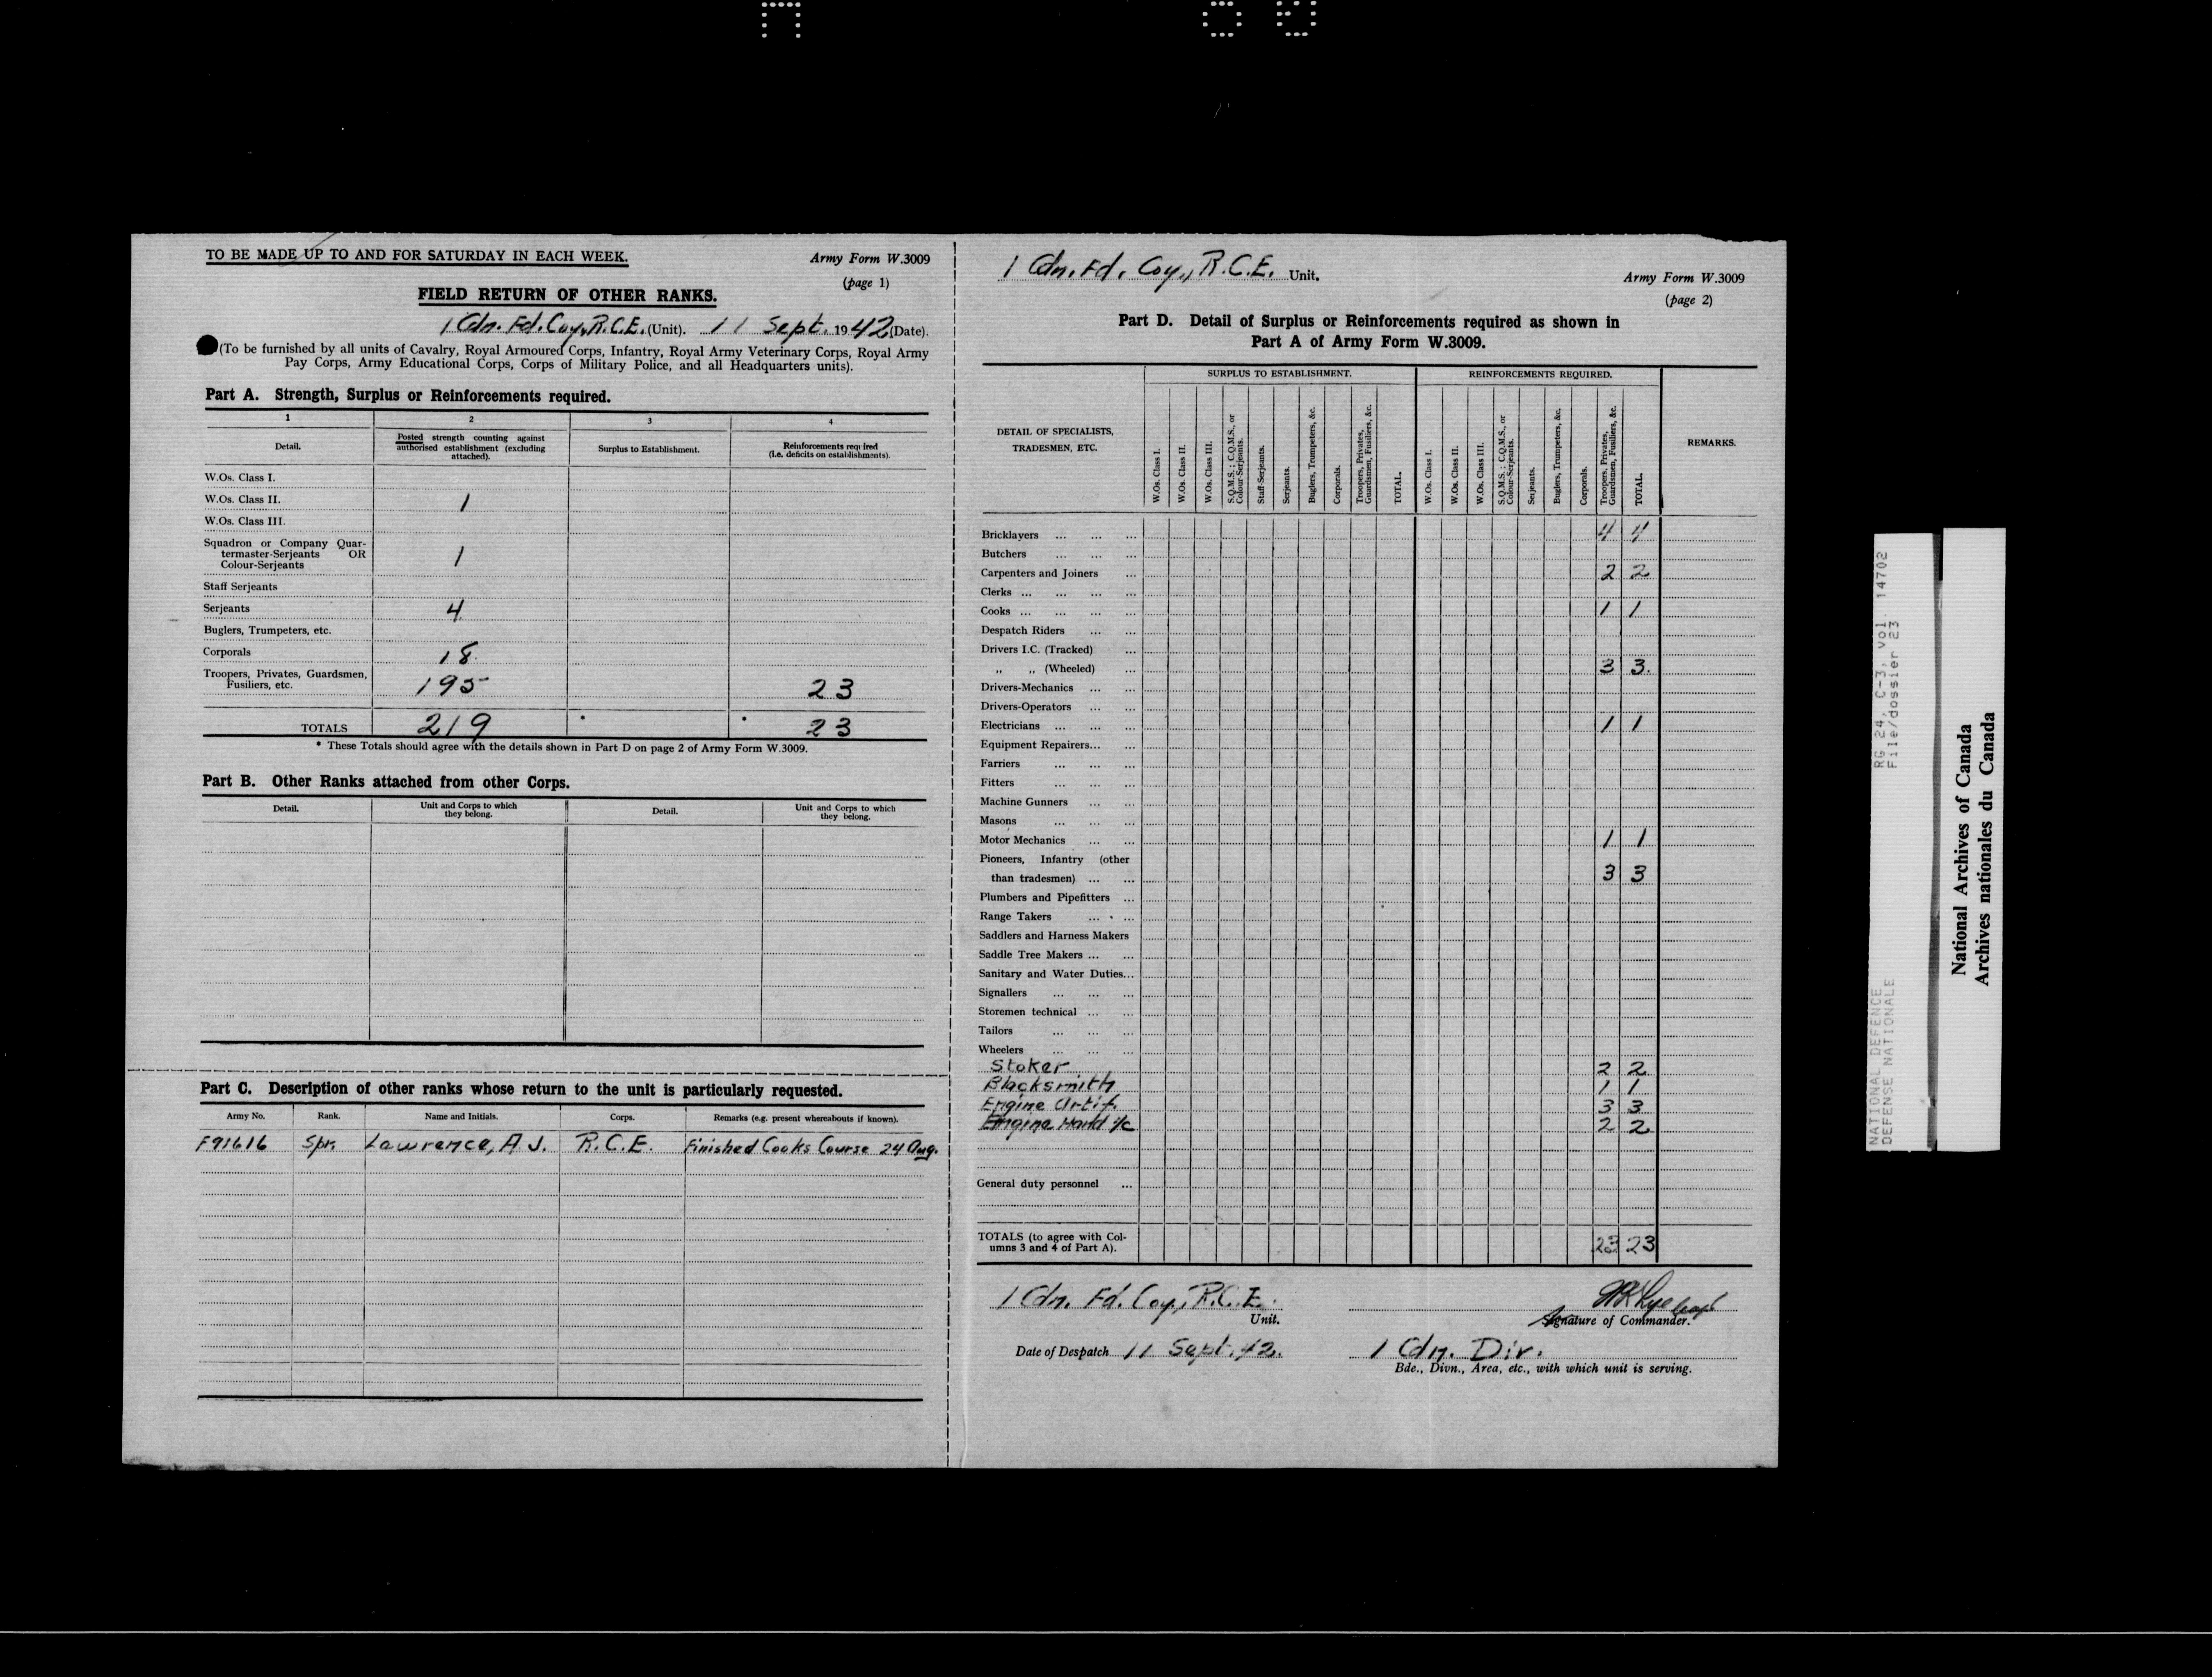 TO BE MADE UP TO AND FOR SATURDAY IN EACH WEEK.
Army Form W.3009
(page 1)
FIELD RETURN OF OTHER RANKS.
1 Cdn. Fd. Coy., R.C.E. (Unit). 11 Sept. 1942 (Date).
(To be furnished by all units of Cavalry, Royal Armoured Corps, Infantry, Royal Army Veterinary Corps, Royal Army
Pay Corps, Army Educational Corps, Corps of Military Police, and all Headquarters units).
Part A. Strength, Surplus or Reinforcements required.
1 2 3 4
Detail. Posted strength counting against authorised establishment (excluding attached). Surplus to Establishment. Reinforcements required (i.e. deficits on establishments).
W.Os. Class I.
W.Os. Class II. 1
W.Os. Class III.
Squadron or Company Quar-
termaster-Serjeants OR
Colour-Serjeants 1
Staff Serjeants
Serjeants 4
Buglers, Trumpeters, etc.
Corporals 18
Troopers, Privates, Guardsmen,
Fusiliers, etc. 195 23
TOTALS 219 * * 23
* These Totals should agree with the details shown in Part D on page 2 of Army Form W.3009.
Part B. Other Ranks attached from other Corps.
Detail. Unit and Corps to which they belong. Detail. Unit and Corps to which they belong.
Part C. Description of other ranks whose return to the unit is particularly requested.
Army No. Rank. Name and Initials. Corps. Remarks (e.g. present whereabouts if known).
F91616 Spr. Lawrence, A J. R.C.E. Finished Cooks Course 24 Aug.
1 Cdn. Fd. Coy., R.C.E. Unit.
Army Form W.3009
(page 2)
Part D. Detail of Surplus or Reinforcements required as shown in
Part A of Army Form W.3009.
DETAIL OF SPECIALISTS,
TRADESMEN, ETC.
SURPLUS TO ESTABLISHMENT.
W.Os. Class I.
W.Os. Class II.
W.Os. Class III.
S.Q.M.S.; C.Q.M.S., or Colour-Serjeants.
Staff-Serjeants.
Serjeants.
Buglers, Trumpeters, &c.
Corporals.
Troopers, Privates, Guardsmen, Fusiliers, &c.
TOTAL.
REINFORCEMENTS REQUIRED.
W.Os. Class I.
W.Os. Class II.
W.Os. Class III.
S.Q.M.S.; C.Q.M.S., or Colour-Serjeants.
Serjeants.
Buglers, Trumpeters, &c.
Corporals.
Troopers, Privates, Guardsmen, Fusiliers, &c.
TOTAL.
REMARKS.
Bricklayers ... ... ... 4 4
Butchers ... ... ...
Carpenters and Joiners ... 2 2
Clerks ... ... ... ...
Cooks ... ... ... ... 1 1
Despatch Riders ... ...
Drivers I.C. (Tracked) ...
„ „ (Wheeled) ... 3 3
Drivers-Mechanics ... ...
Drivers-Operators ... ...
Electricians ... ... ... 1 1
Equipment Repairers... ...
Farriers ... ... ...
Fitters ... ... ...
Machine Gunners ... ...
Masons ... ... ...
Motor Mechanics ... ... 1 1
Pioneers, Infantry (other
than tradesmen) ... ... 3 3
Plumbers and Pipefitters ...
Range Takers ... ...
Saddlers and Harness Makers
Saddle Tree Makers ... ...
Sanitary and Water Duties...
Signallers ... ... ...
Storemen technical ... ...
Tailors ... ... ...
Wheelers ... ... ...
Stoker 2 2
Blacksmith 1 1
Engine Artif. 3 3
Engine Hand i/c 2 2
General duty personnel ...
TOTALS (to agree with Col-
umns 3 and 4 of Part A). 23 23
1 Cdn. Fd. Coy., R.C.E.
Unit.
Capt
Signature of Commander.
Date of Despatch 11 Sept. 42.
1 Cdn. Div.
Bde., Divn., Area, etc., with which unit is serving.
NATIONAL DEFENCE RG 24, C-3, vol. 14702
DEFENSE NATIONALE File/dossier 23
National Archives of Canada
Archives nationales du Canada